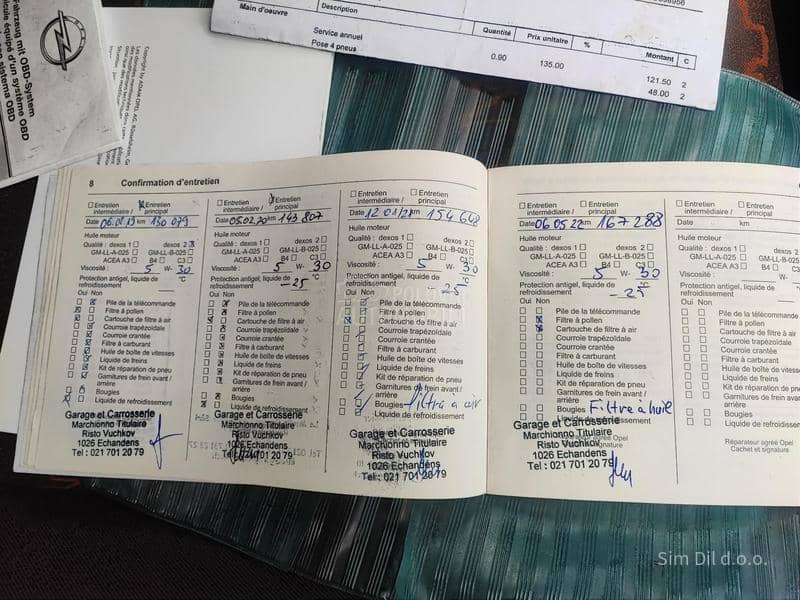 Fahrzeug mit OBD-System
Véhicule équipé d'un système OBD
sistema OBD
Copyright by ADAM OPEL AG, Rüsselsheim
Main d'oeuvre
Description
Quantité
Prix unitaire
%
Montant
C
Service annuel
Pose 4 pneus
0.90
135.00
121.50 2
48.00 2
8 Confirmation d'entretien
Entretien intermédiaire /
Entretien principal
Date 06.02.19 km 130 079
Huile moteur
Qualité : dexos 1 dexos 2
GM-LL-A-025 GM-LL-B-025
ACEA A3 B4 C3
Viscosité : 5 W- 30
Protection antigel, liquide de
refroidissement °C
Oui Non
Pile de la télécommande
Filtre à pollen
Cartouche de filtre à air
Courroie trapézoïdale
Courroie crantée
Filtre à carburant
Huile de boîte de vitesses
Liquide de freins
Kit de réparation de pneu
Garnitures de frein avant /
arrière
Bougies
Liquide de refroidissement
Garage et Carrosserie
Marchionno Titulaire
Risto Vuchkov
1026 Echandens
Tel : 021 701 20 79
Entretien intermédiaire /
Entretien principal
Date 05.02.20 km 143 807
Huile moteur
Qualité : dexos 1 dexos 2
GM-LL-A-025 GM-LL-B-025
ACEA A3 B4 C3
Viscosité : 5 W- 30
Protection antigel, liquide de
refroidissement -25 °C
Oui Non
Pile de la télécommande
Filtre à pollen
Cartouche de filtre à air
Courroie trapézoïdale
Courroie crantée
Filtre à carburant
Huile de boîte de vitesses
Liquide de freins
Kit de réparation de pneu
Garnitures de frein avant /
arrière
Bougies
Liquide de refroidissement
Garage et Carrosserie
Marchionno Titulaire
Risto Vuchkov
1026 Echandens
Tel : 021 701 20 79
Entretien intermédiaire /
Entretien principal
Date 12 01/21 km 154 648
Huile moteur
Qualité : dexos 1 dexos 2
GM-LL-A-025 GM-LL-B-025
ACEA A3 B4 C3
Viscosité : 5 W- 30
Protection antigel, liquide de
refroidissement -25 °C
Oui Non
Pile de la télécommande
Filtre à pollen
Cartouche de filtre à air
Courroie trapézoïdale
Courroie crantée
Filtre à carburant
Huile de boîte de vitesses
Liquide de freins
Kit de réparation de pneu
Garnitures de frein avant /
arrière
Bougies filtre à
Liquide de refroidissement
Garage et Carrosserie
Marchionno Titulaire
Risto Vuchkov
1026 Echandens
Tel : 021 701 20 79
Entretien intermédiaire /
Entretien principal
Date 06 05 22 km 167 288
Huile moteur
Qualité : dexos 1 dexos 2
GM-LL-A-025 GM-LL-B-025
ACEA A3 B4 C3
Viscosité : 5 W- 30
Protection antigel, liquide de
refroidissement -25 °C
Oui Non
Pile de la télécommande
Filtre à pollen
Cartouche de filtre à air
Courroie trapézoïdale
Courroie crantée
Filtre à carburant
Huile de boîte de vitesses
Liquide de freins
Kit de réparation de pneu
Garnitures de frein avant /
arrière
Bougies Filtre à huile
Garage et Carrosserie
Marchionno Titulaire
Risto Vuchkov
1026 Echandens
Tel : 021 701 20 79
Entretien intermédiaire /
Entretien principal
Date km
Huile moteur
Qualité : dexos 1 dexos 2
GM-LL-A-025 GM-LL-B-025
ACEA A3 B4 C3
Viscosité : W-
Protection antigel, liquide de
refroidissement
Oui Non
Pile de la télécommande
Filtre à pollen
Cartouche de filtre à air
Courroie trapézoïdale
Courroie crantée
Filtre à carburant
Huile de boîte de vitesses
Liquide de freins
Kit de réparation de pneu
Garnitures de frein avant /
arrière
Bougies
Liquide de refroidissement
Réparateur agréé Opel
Cachet et signature
Sim Dil d.o.o.